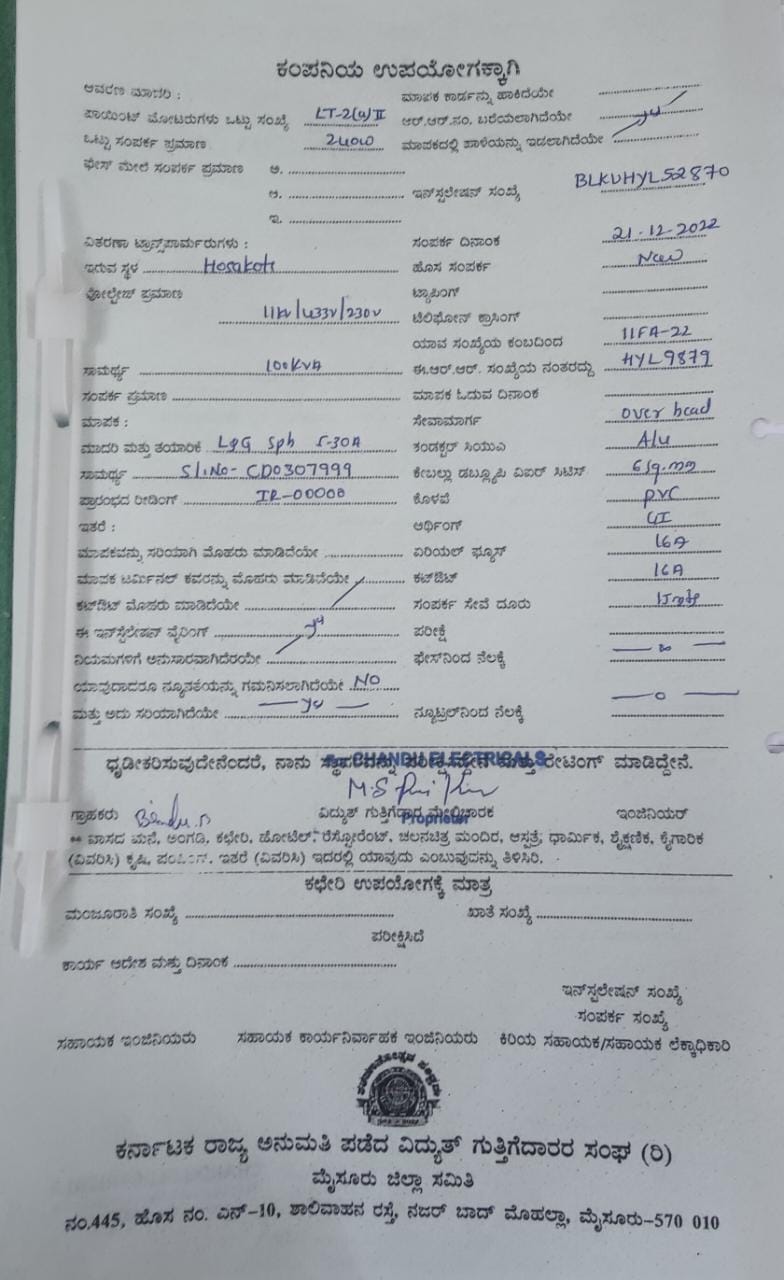 ಕಂಪನಿಯ ಉಪಯೋಗಕ್ಕಾಗಿ
ಆವರಣ ಮಾದರಿ : ಮಾಪಕ ಕಾರ್ಡನ್ನು ಹಾಕಿದೆಯೇ
ಪಾಯಿಂಟ್ ಮೋಟರುಗಳು ಒಟ್ಟು ಸಂಖ್ಯೆ LT-2(a)II ಆರ್.ಆರ್.ನಂ. ಬರೆಯಲಾಗಿದೆಯೇ
ಒಟ್ಟು ಸಂಪರ್ಕ ಪ್ರಮಾಣ 240W ಮಾಪಕದಲ್ಲಿ ಹಾಳೆಯನ್ನು ಇಡಲಾಗಿದೆಯೇ
ಫೇಸ್ ಮೇಲೆ ಸಂಪರ್ಕ ಪ್ರಮಾಣ ಅ.
ಆ. ಇನ್‌ಸ್ಟಲೇಷನ್ ಸಂಖ್ಯೆ BLKUHYL52870
ಇ.
ವಿತರಣಾ ಟ್ರಾನ್ಸ್‌ಪಾರ್ಮರುಗಳು : ಸಂಪರ್ಕ ದಿನಾಂಕ 21-12-2022
ಇರುವ ಸ್ಥಳ Hosakote ಹೊಸ ಸಂಪರ್ಕ New
ವೋಲ್ಟೇಜ್ ಪ್ರಮಾಣ ಟ್ಯಾಪಿಂಗ್
11kv/433v/230v ಟೆಲಿಫೋನ್ ಕ್ರಾಸಿಂಗ್
ಯಾವ ಸಂಖ್ಯೆಯ ಕಂಬದಿಂದ 11FA-22
ಸಾಮರ್ಥ್ಯ 100KVA ಈ.ಆರ್.ಆರ್. ಸಂಖ್ಯೆಯ ನಂತರದ್ದು HYL9879
ಸಂಪರ್ಕ ಪ್ರಮಾಣ ಮಾಪಕ ಓದುವ ದಿನಾಂಕ
ಮಾಪಕ : ಸೇವಾಮಾರ್ಗ over head
ಮಾದರಿ ಮತ್ತು ತಯಾರಿಕೆ L&G Sph 5-30A ಕಂಡಕ್ಟರ್ ಸಿಯುವಿ Alu
ಸಾಮರ್ಥ್ಯ Sl.No- CD0307999 ಕೇಬಲ್ಲು ಡಬ್ಲ್ಯೂಪಿ ವಿಐರ್ ಸಿಟಿಸ್ 6sq.mm
ಪ್ರಾರಂಭದ ರೀಡಿಂಗ್ IR-00000 ಕೊಳವೆ PVC
ಇತರೆ : ಅರ್ಥಿಂಗ್ GI
ಮಾಪಕವನ್ನು ಸರಿಯಾಗಿ ಮೊಹರು ಮಾಡಿದೆಯೇ ಏರಿಯಲ್ ಫ್ಯೂಸ್ 16A
ಮಾಪಕ ಟರ್ಮಿನಲ್ ಕವರನ್ನು ಮೊಹರು ಮಾಡಿದೆಯೇ ಕಟ್‌ಔಟ್ 16A
ಕಟ್‌ಔಟ್ ಮೊಹರು ಮಾಡಿದೆಯೇ ಸಂಪರ್ಕ ಸೇವೆ ದೂರು
ಈ ಇನ್‌ಸ್ಟಲೇಷನ್ ವೈರಿಂಗ್ ಪರೀಕ್ಷೆ
ನಿಯಮಗಳಿಗೆ ಅನುಸಾರವಾಗಿದೆರಯೇ ಫೇಸ್‌ನಿಂದ ನೆಲಕ್ಕೆ
ಯಾವುದಾದರೂ ನ್ಯೂನತೆಯನ್ನು ಗಮನಿಸಲಾಗಿದೆಯೇ NO
ಮತ್ತು ಅದು ಸರಿಯಾಗಿದೆಯೇ ನ್ಯೂಟ್ರಲ್‌ನಿಂದ ನೆಲಕ್ಕೆ — 0 —
For CHANDU ELECTRICALS
ಧೃಡೀಕರಿಸುವುದೇನೆಂದರೆ, ನಾನು ಸ್ಥಾಪನವನ್ನು ಪರೀಕ್ಷಿಸಿದ್ದೇನೆ ಮತ್ತು ರೇಟಿಂಗ್ ಮಾಡಿದ್ದೇನೆ.
ಗ್ರಾಹಕರು ವಿದ್ಯುತ್ ಗುತ್ತಿಗೆದಾರ ಮೇಲ್ವಿಚಾರಕ ಇಂಜಿನಿಯರ್
Proprietor
** ವಾಸದ ಮನೆ, ಅಂಗಡಿ, ಕಛೇರಿ, ಹೋಟೆಲ್, ರೆಸ್ಟೋರೆಂಟ್, ಚಲನಚಿತ್ರ ಮಂದಿರ, ಆಸ್ಪತ್ರೆ, ಧಾರ್ಮಿಕ, ಶೈಕ್ಷಣಿಕ, ಕೈಗಾರಿಕ
(ವಿವರಿಸಿ) ಕೃಷಿ, ಪಂಪಿಂಗ್, ಇತರೆ (ವಿವರಿಸಿ) ಇದರಲ್ಲಿ ಯಾವುದು ಎಂಬುವುದನ್ನು ತಿಳಿಸಿರಿ.
ಕಛೇರಿ ಉಪಯೋಗಕ್ಕೆ ಮಾತ್ರ
ಮಂಜೂರಾತಿ ಸಂಖ್ಯೆ ಖಾತೆ ಸಂಖ್ಯೆ
ಪರೀಕ್ಷಿಸಿದೆ
ಕಾರ್ಯ ಆದೇಶ ಮತ್ತು ದಿನಾಂಕ
ಇನ್‌ಸ್ಟಲೇಷನ್ ಸಂಖ್ಯೆ
ಸಂಪರ್ಕ ಸಂಖ್ಯೆ
ಸಹಾಯಕ ಇಂಜಿನಿಯರು ಸಹಾಯಕ ಕಾರ್ಯನಿರ್ವಾಹಕ ಇಂಜಿನಿಯರು ಕಿರಿಯ ಸಹಾಯಕ/ಸಹಾಯಕ ಲೆಕ್ಕಾಧಿಕಾರಿ
ಕರ್ನಾಟಕ ರಾಜ್ಯ ಅನುಮತಿ ಪಡೆದ ವಿದ್ಯುತ್ ಗುತ್ತಿಗೆದಾರರ ಸಂಘ (ರಿ)
ಮೈಸೂರು ಜಿಲ್ಲಾ ಸಮಿತಿ
ನಂ.445, ಹೊಸ ನಂ. ಎನ್-10, ಶಾಲಿವಾಹನ ರಸ್ತೆ, ನಜರ್ ಬಾದ್ ಮೊಹಲ್ಲಾ, ಮೈಸೂರು-570 010